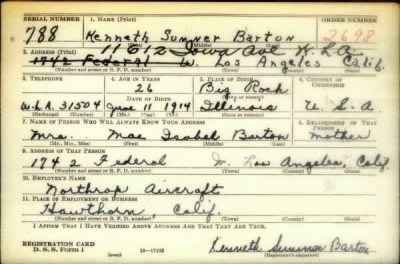 SERIAL NUMBER 1. NAME (Print) ORDER NUMBER
788 Kenneth Sumner Barton 2698
(First) (Middle) (Last)
2. ADDRESS (Print) 11012 Iowa Ave W.L.A.
1742 Federal W. Los Angeles Calif.
(Number and street or R. F. D. number) (Town) (County) (State)
3. TELEPHONE 4. AGE IN YEARS 5. PLACE OF BIRTH 6. COUNTRY OF CITIZENSHIP
26 Big Rock
DATE OF BIRTH (Town or county)
W.L.A. 31504 11 1914 Illinois U. S. A.
(Exchange) (Number) (Mo.) (Day) (Yr.) (State or country)
7. NAME OF PERSON WHO WILL ALWAYS KNOW YOUR ADDRESS 8. RELATIONSHIP OF THAT PERSON
Mrs. Mae Isabel Barton mother
(Mr., Mrs., Miss) (First) (Middle) (Last)
9. ADDRESS OF THAT PERSON
1742 Federal W. Los Angeles, Calif.
(Number and street or R. F. D. number) (Town) (County) (State)
10. EMPLOYER'S NAME
Northrop Aircraft
11. PLACE OF EMPLOYMENT OR BUSINESS
Hawthorn, Calif.
(Number and street or R. F. D. number) (Town) (County) (State)
I AFFIRM THAT I HAVE VERIFIED ABOVE ANSWERS AND THAT THEY ARE TRUE.
REGISTRATION CARD
D. S. S. Form 1 (over) Kenneth Sumner Barton
(Registrant's signature)